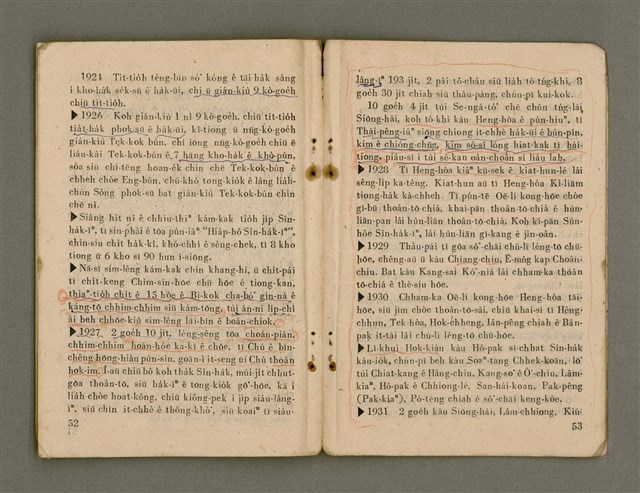 1924 Tit-tio̍h téng-bīn só͘ kóng ê tāi-ha̍k sàng
i kho-ha̍k se̍k-sū ê ha̍k-ūi, chí ū gián-kiù 9 kò-goe̍h
chiū tit-tio̍h.
▶1926 Koh gián-kiù 1 nî 9 kò-goe̍h, chiū tit-tio̍h
tia̍t-ha̍k phok-sū ê ha̍k-ūi, kî-tiong ū nn̄g-kò-goe̍h
gián-kiù Tek-kok bûn, chí iōng nn̄g-kò-goe̍h chiū ē
liáu-kái Tek-kok-bûn ê 7 hāng kho-ha̍k ê khò-pún,
sòa siū chí-tēng hoan-e̍k chin chē Tek-kok-bûn ê
chheh chòe Eng-bûn, chū-khó tong-kio̍k ê lâng lia̍h-
chún Sòng phok-sū bat gián-kiù Tek-kok-bûn chin
chē nî.
▶Siāng hit nî ê chhiu-thiⁿ kám-kak tio̍h ji̍p Sîn-
ha̍k-īⁿ, ti sin-phài ê tōa pún-iâⁿ "Hia̍p-hō Sîn-ha̍k-īⁿ",
chin-siu chit ha̍k-kî, khó-chhì ê sêng-chek, tī 8 kho
tiong ū 6 kho sī 90 hun í-siōng.
▶Nā-sī sim-lêng kám-kak chin khang-hi, ū chit-pái
tī chit-keng Chìm-sìn-hōe chū hōe ê tiong-kan,
thiaⁿ-tio̍h chi̍t ê 15 hòe ê Bí-kok cha-bó͘ gín-ná ê
káng-tō chhim-chhim siū kám-tōng, tùi án-ní li̍p-chì
ài beh chhōe-kiù sim-lêng lāi-bīn ê boán-chiok.
▶1927 2 goe̍h 10 ji̍t, lêng-sèng tōa choán-piàn,
chhim-chhim hoán-hóe ka-kī ê chōe, tī Chú ê bīn-
chêng hōng-hiàn pún-sin, goān-ì it-seng ūi Chú thoân
hok-im. I-au chiū bô koh tha̍k Sîn-ha̍k, múi-ji̍t chhut-
gōa thoân-tō, siū ha̍k-īⁿ ê tong-kio̍k gō͘-hōe, kā i
lia̍h-chòe hoat-kông, chiū kiông-pek i ji̍p siâu-lâng-
īⁿ, siū chīn it-chhè ê thòng-khó͘, siū koaiⁿ tī siâu-
52
lâng-īⁿ 193 ji̍t, 2 pái tô-cháu siū lia̍h tò-tńg-khì, 8
goe̍h 30 ji̍t chiah siū tháu-pàng, chún-pī kui-kok.
10 goe̍h 4 ji̍t tùi Se-ngá-tô͘ chē chûn tńg-lâi
Siōng-hái, koh tò-khì kàu Heng-hòa ê pún-hiuⁿ, tī
Thài-pêng-iûⁿ siōng chiong it-chhè ha̍k-ūi ê bûn-pîn,
kim ê chióng-chng, kim só-sî lóng hiat-kak tī hái-
tiong, piáu-sī i tùi sè-kan oân-choân sí liáu lah.
▶1928 Tī Heng-hòa kiâⁿ kū-sek ê kiat-hun-lé lâi
sêng-lip ka-têng. Kiat-hun āu tī Heng-hòa Kì-liām
tiong-ha̍k kà-chheh. Tī pún-tē Oē-lí kong-hōe chòe
gī-bū thoân-tō-chiá, khai-pān thoân-tō-chiá ê hùn-
liān-pan lâi hùn-liān thoân-tō-chiá. Koh kî-pān Sûn-
hôe Sîn-ha̍k-īⁿ, lâi hùn-liān gī-kang ê jîn-oân.
▶1929 Thâu-pái tī gōa só͘-chāi chú-lí lêng-tō chū-
hōe, chēng-aū ū kàu Chiang-chiu, Ē-mn̂g kap Choân-
chiu. Bat kàu Kang-sai Kó͘-niá lâi chham-ka thoân
tō-chiá ê thè-siu hōe.
▶1930 Chham-ka Oē-lí kong-hōe Heng-hòa tāi-
hōe, siū jīm chòe thoân-tō-sāi, chiū khai-sí tī Hèng-
chhun, Tek-hòa, Hok-chheng, Iân-pêng chiah ê Bân-
pak it-tài lâi chú-lí lêng-tō chū-hōe.
▶Lī-khui Hok-kiàn kàu Hô-pak sí-chhut Sîn-ha̍k
kàu-io̍k, chún-pī beh kàu Soaⁿ-tang Chhek-koân, lō͘
tùi Chiat-kang ê Hâng-chiu, Kang-so͘ ê Ô͘-chiu, Lâm-
kiaⁿ, Hô-pak ê Chhiong-lê, San-hái-koan, Pak-pêng
(Pak-kiaⁿ), Pó-tēng chiah ê só͘-chāi keng-kòe.
▶1931 2 goe̍h kàu Siōng-hái, Lâm-chhiong, Kiú-
53